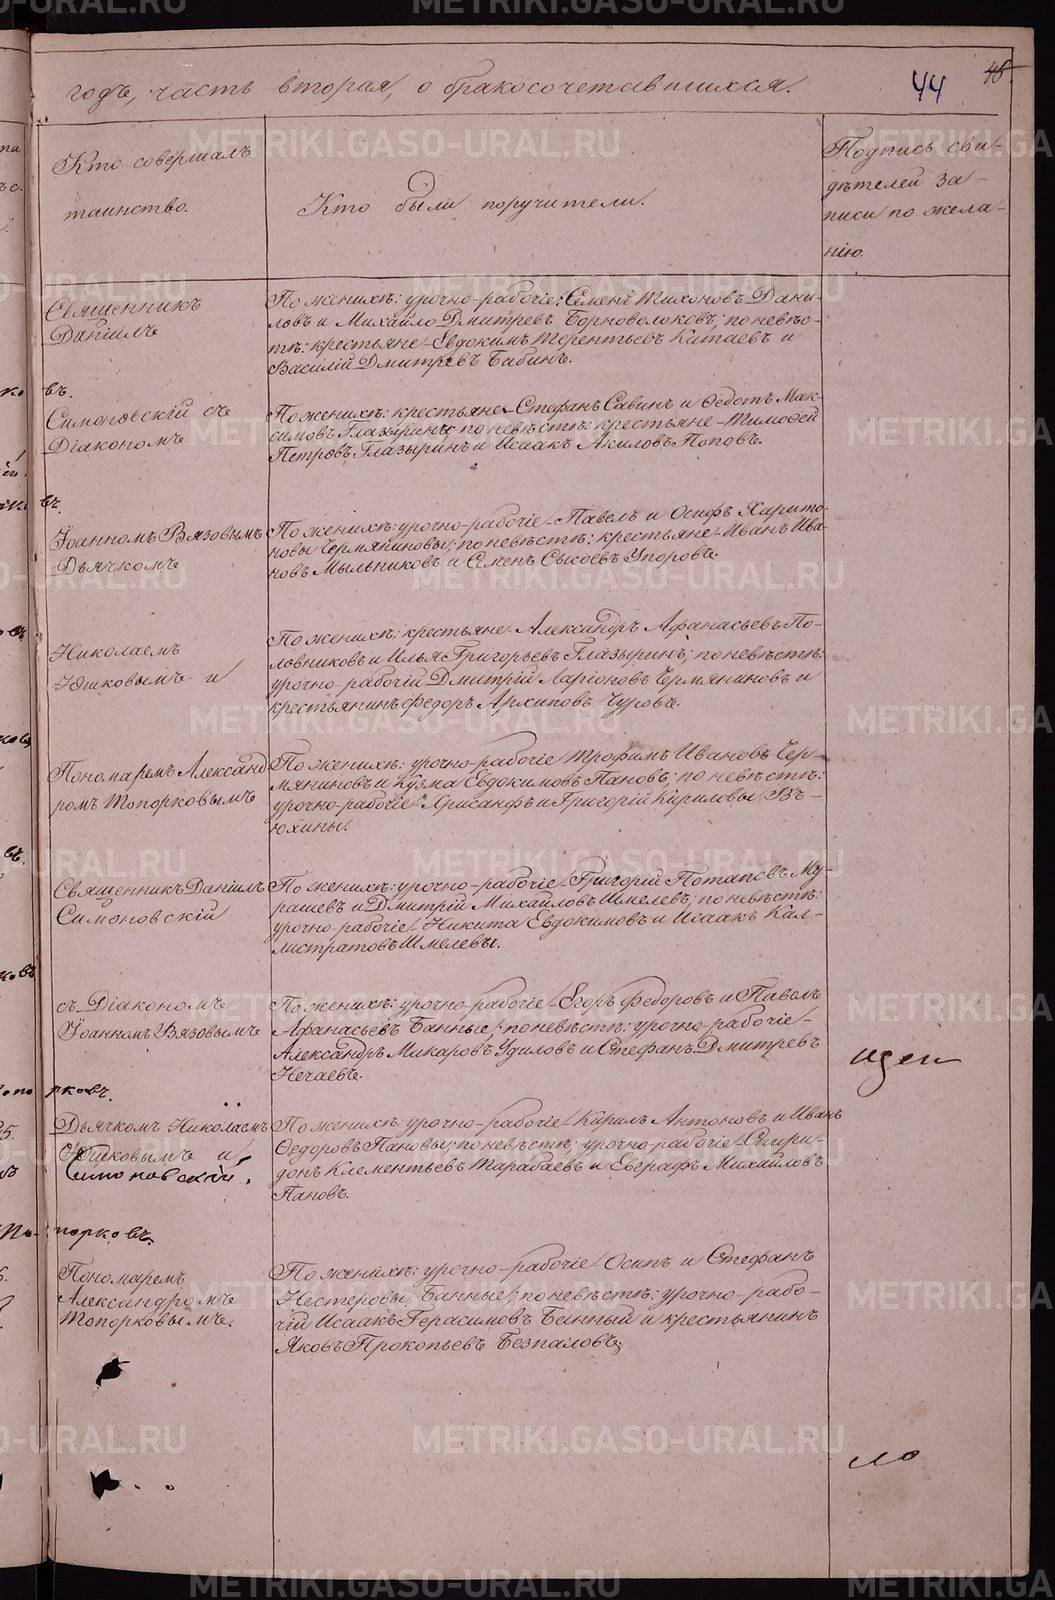 годъ, часть вторая, о бракосочетавшихся.
44
Кто совершалъ
таинство.
Кто были поручители.
Подпись сви-
дѣтелей за-
писи по жела-
нію.
Священникъ
Даніилъ
По женихѣ: урочно-рабочіе: Семенъ Тихоновъ Дани-
ловъ и Михайло Дмитревъ Борноволоковъ; по невѣс-
тѣ: крестьяне Евдокимъ Терентьевъ Китаевъ и
Василій Дмитревъ Бабинъ.
въ.
Симоновскій съ
Діакономъ
По женихѣ: крестьяне Стефанъ Савинъ и Ѳедотъ Мак-
симовъ Глазырины; по невѣстѣ: крестьяне Тимофей
Петровъ Глазыринъ и Исаакъ Акиловъ Поповъ.
въ.
Іоанномъ Вязовымъ
Дьячкомъ
По женихѣ: урочно-рабочіе Павелъ и Осифъ Харито-
новы Чермяниновы; по невѣстѣ: крестьяне Иванъ Ива-
новъ Мыльниковъ и Семенъ Сысоевъ Упоровъ.
Николаемъ
Юшковымъ и
По женихѣ: крестьяне Александръ Афанасьевъ По-
ловниковъ и Илья Григорьевъ Глазыринъ; по невѣстѣ:
урочно-рабочій Дмитрій Ларіоновъ Чермяниновъ и
крестьянинъ Федоръ Архиповъ Чуровъ.
Пономаремъ Александ
ромъ Топорковымъ
По женихѣ: урочно-рабочіе Трофимъ Ивановъ Чер-
мяниновъ и Кузма Евдокимовъ Пановъ; по невѣстѣ:
урочно-рабочіе Хрисанфъ и Григорій Кириловы Вь-
юхины.
Священникъ Даніилъ
Симоновскій
По женихѣ: урочно-рабочіе Григорій Потаповъ Му-
рашевъ и Дмитрій Михайловъ Шмелевъ; по невѣстѣ:
урочно-рабочіе Никита Евдокимовъ и Исаакъ Кал-
листратовъ Шмелевы.
съ Діакономъ
Іоанномъ Вязовымъ
По женихѣ: урочно-рабочіе Егоръ Федоровъ и Павелъ
Афанасьевъ Банные; по невѣстѣ: урочно-рабочіе
Александръ Макаровъ Удиловъ и Стефанъ Дмитревъ
Нечаевъ.
рковъ.
Дьячкомъ Николаемъ
Юшковымъ и
Симоновскій.
По женихѣ: урочно-рабочіе Кирилъ Антоновъ и Иванъ
Ѳедоровъ Пановы; по невѣстѣ: урочно-рабочіе Спири-
донъ Клементьевъ Тарабаевъ и Евграфъ Михайловъ
Пановъ.
порковъ.
Пономаремъ
Александромъ
Топорковымъ.
По женихѣ: урочно-рабочіе Осипъ и Стефанъ
Нестеровы Банные; по невѣстѣ: урочно-рабо-
чій Исаакъ Герасимовъ Банный и крестьянинъ
Яковъ Прокопьевъ Безпаловъ;
ло
METRIKI.GASO-URAL.RU